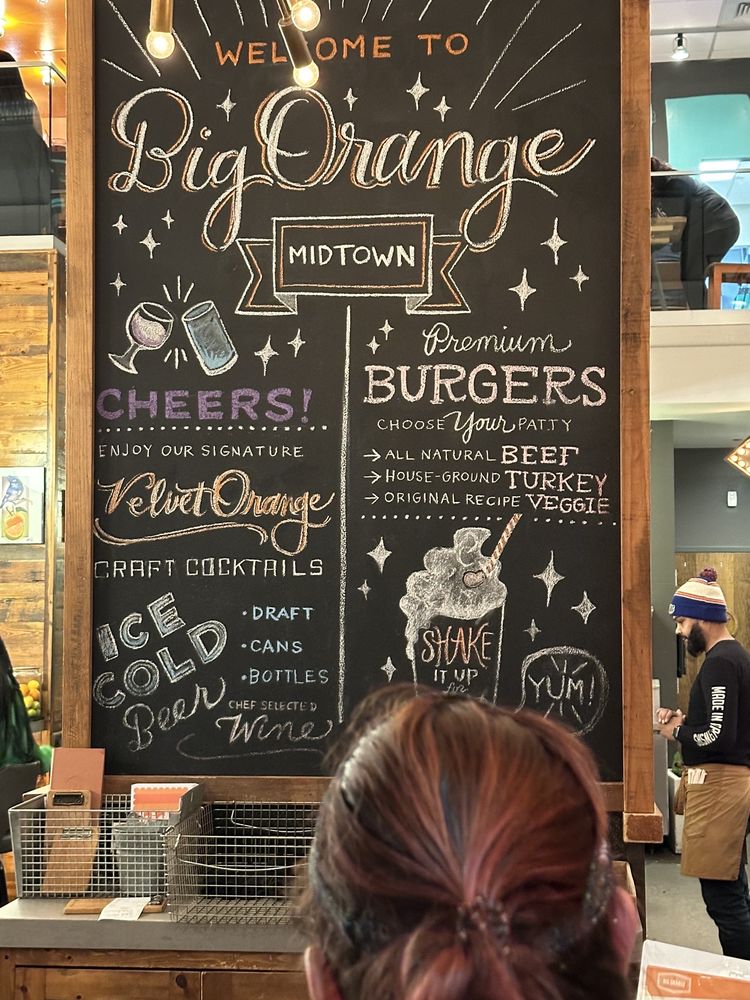 WELCOME TO
Big Orange
MIDTOWN
CHEERS!
ENJOY OUR SIGNATURE
Velvet Orange
CRAFT COCKTAILS
ICE
COLD
Beer
• DRAFT
• CANS
• BOTTLES
CHEF SELECTED
Wine
Premium
BURGERS
CHOOSE Your PATTY
→ ALL NATURAL BEEF
→ HOUSE-GROUND TURKEY
→ ORIGINAL RECIPE VEGGIE
SHAKE
IT UP
for
YUM!
MADE IN
BIG ORANGE